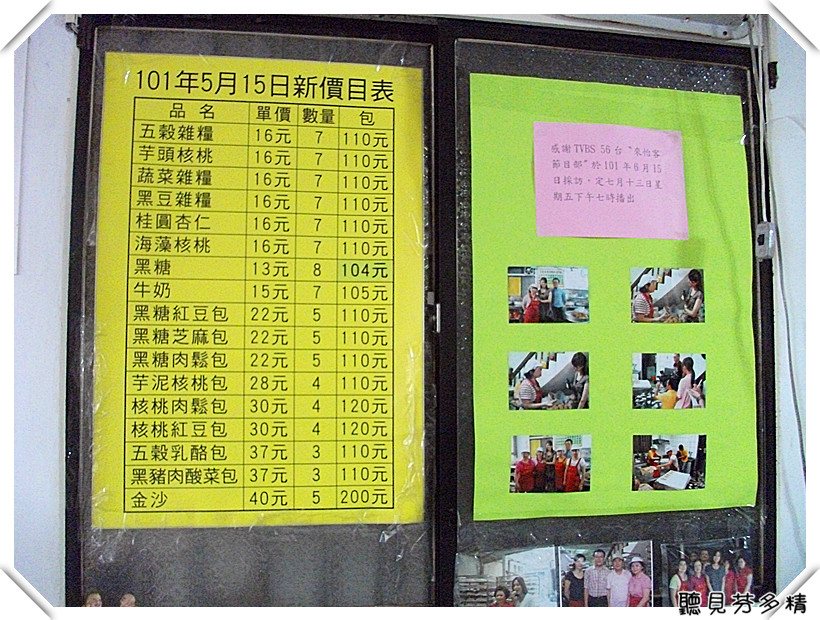 101年5月15日新價目表
品名 單價 數量 包
五穀雜糧 16元 7 110元
芋頭核桃 16元 7 110元
蔬菜雜糧 16元 7 110元
黑豆雜糧 16元 7 110元
桂圓杏仁 16元 7 110元
海藻核桃 16元 7 110元
黑糖 13元 8 104元
牛奶 15元 7 105元
黑糖紅豆包 22元 5 110元
黑糖芝麻包 22元 5 110元
黑糖肉鬆包 22元 5 110元
芋泥核桃包 28元 4 110元
核桃肉鬆包 30元 4 120元
核桃紅豆包 30元 4 120元
五穀乳酪包 37元 3 110元
黑豬肉酸菜包 37元 3 110元
金沙 40元 5 200元
感謝TVBS 56台"來怡客
節目部"於101年6月15
日採訪,定七月十三日星
期五下午七時播出
聽見芬多精